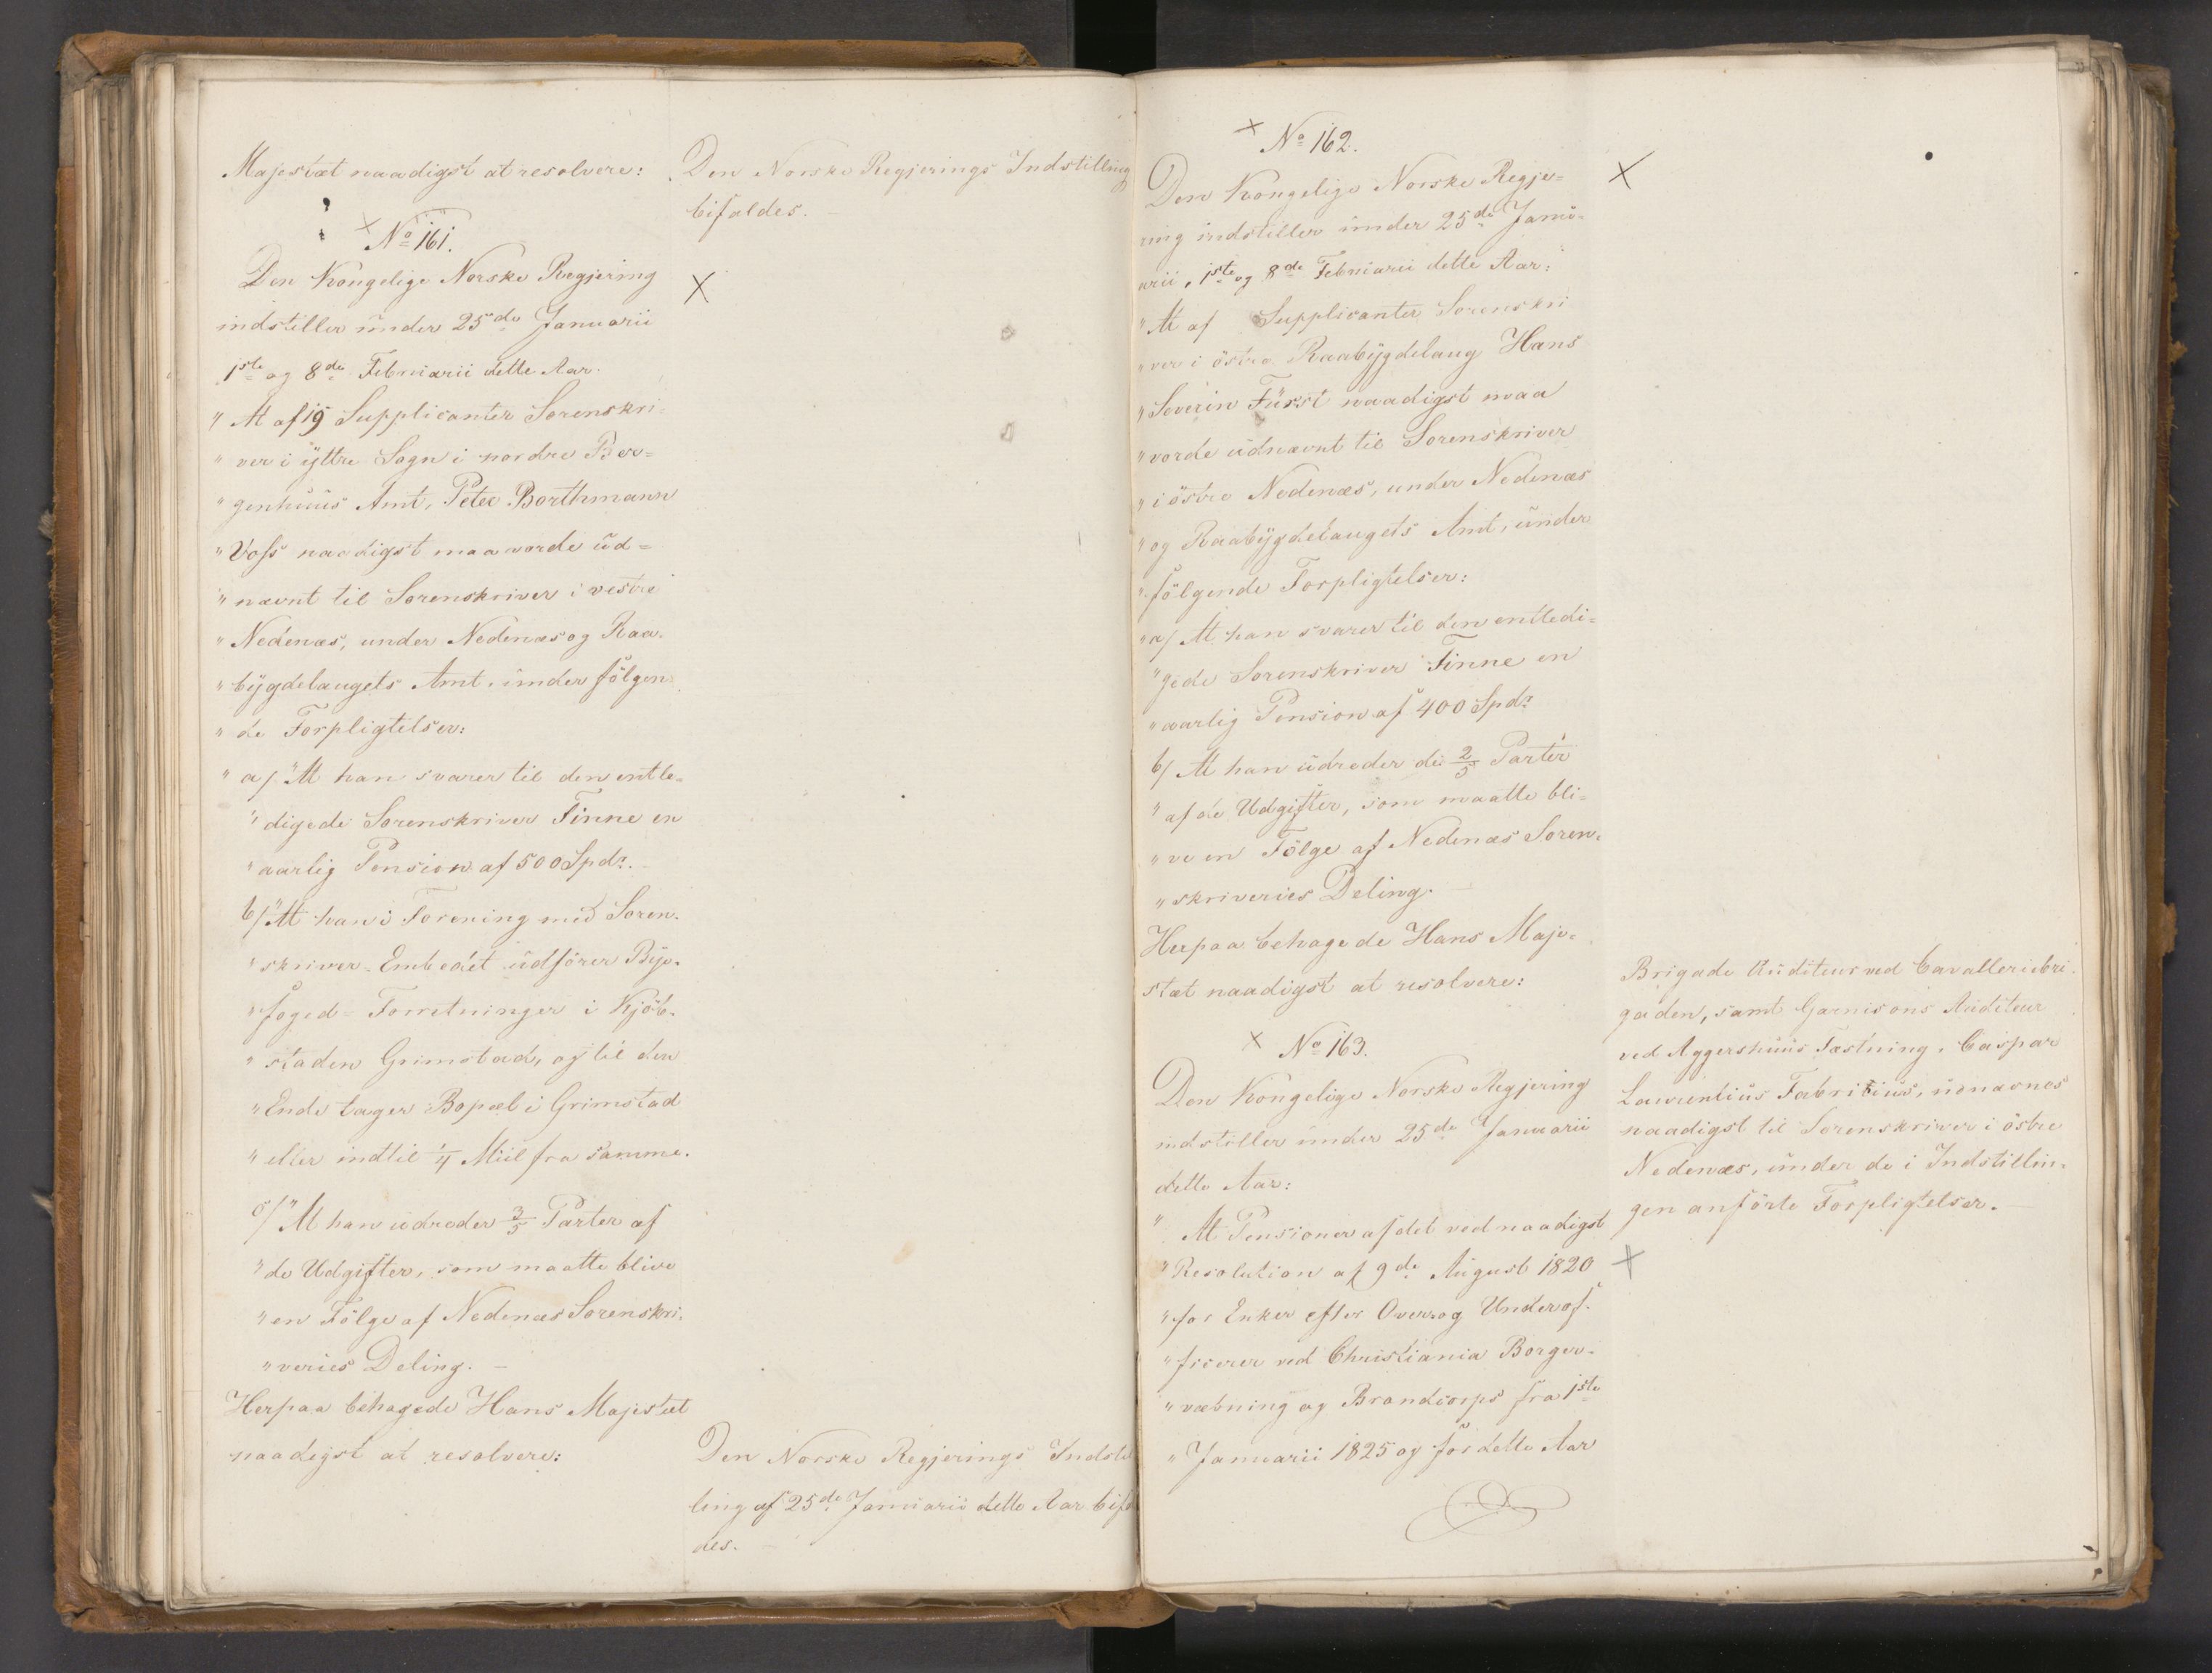 Majestæt naadigst at resolvere:
Den Norske Regjerings Indstilling
bifaldes. –
× No 161.
Den Kongelige Norske Regjering
indstiller under 25de Januarii
1ste og 8de Februarii dette Aar.
" At af 19 Supplicanter Sorenskri-
" ver i yttre Sogn i nordre Ber=
" genhuus Amt, Peter Borthmann
" Voss naadigst maa vorde ud=
" nævnt til Sorenskriver i vestre
" Nedenæs, under Nedenæs og Raa-
" bygdelaugets Amt, under fölgen-
" de Forpligtelser:
" a/ "At han svarer til den entle-
" digede Sorenskriver Finne en
" aarlig Pension af 500 Spdr.
b/ "At han i Forening med Soren-
" skriver-Embedet udförer Bye-
" foged= Forretninger i Kjöb-
" staden Grimstad, og til den
" Ende tager Bopæl i Grimstad
" eller indtil 1/4 Miil fra samme.
c/ "At han udreder 3/5 Parter af
" de Udgifter, som maatte blive
" en Fölge af Nedenæs Sorenskri-
" veries Deling. –
Herpaa behagede Hans Majestæt
naadigst at resolvere:
×
Den Norske Regjerings Indstil
ling af 25de Januarii dette Aar bifal
des. –
× No 162.
Den Kongelige Norske Regje=
ring indstiller under 25de Janu-
arii, 1ste og 8de Februarii dette Aar:
" At af Supplicanter Sorenskri
" ver i östre Raabygdelaug Hans
" Severin Fürst naadigst maa
" vorde udnævnt til Sorenskriver
" i östre Nedenæs, under Nedenæs
" og Raabygdelaugets Amt, under
" fölgende Forpligtelser:
" a/ At han svarer til den entledi=
" gede Sorenskriver Finne en
" aarlig Pension af 400 Spdr
b/ At han udreder de 2/5 Parter
" af de Udgifter, som maatte bli=
" ve en Fölge af Nedenæs Soren-
" skriveries Deling. –
Herpaa behagede Hans Maje=
stæt naadigst at resolvere:
×
Brigade Auditeur ved Cavalleriebri-
gaden, samt Garnisons Auditeur
ved Aggershuus Fæstning, Caspar
Laurentius Fabritius, udnævnes
naadigst til Sorenskriver i östre
Nedenæs, under de i Indstillin-
gen anförte Forpligtelser. –
× No 163.
Den Kongelige Norske Regjering
indstiller under 25de Januarii
dette Aar:
" At Pensioner af det ved naadigst
" Resolution af 9de August 1820
" for Enker efter Over- og Underof-
" ficerer ved Christiania Borger-
" væbning og Brandcorps fra 1ste
" Januarii 1825 og for dette Aar
×